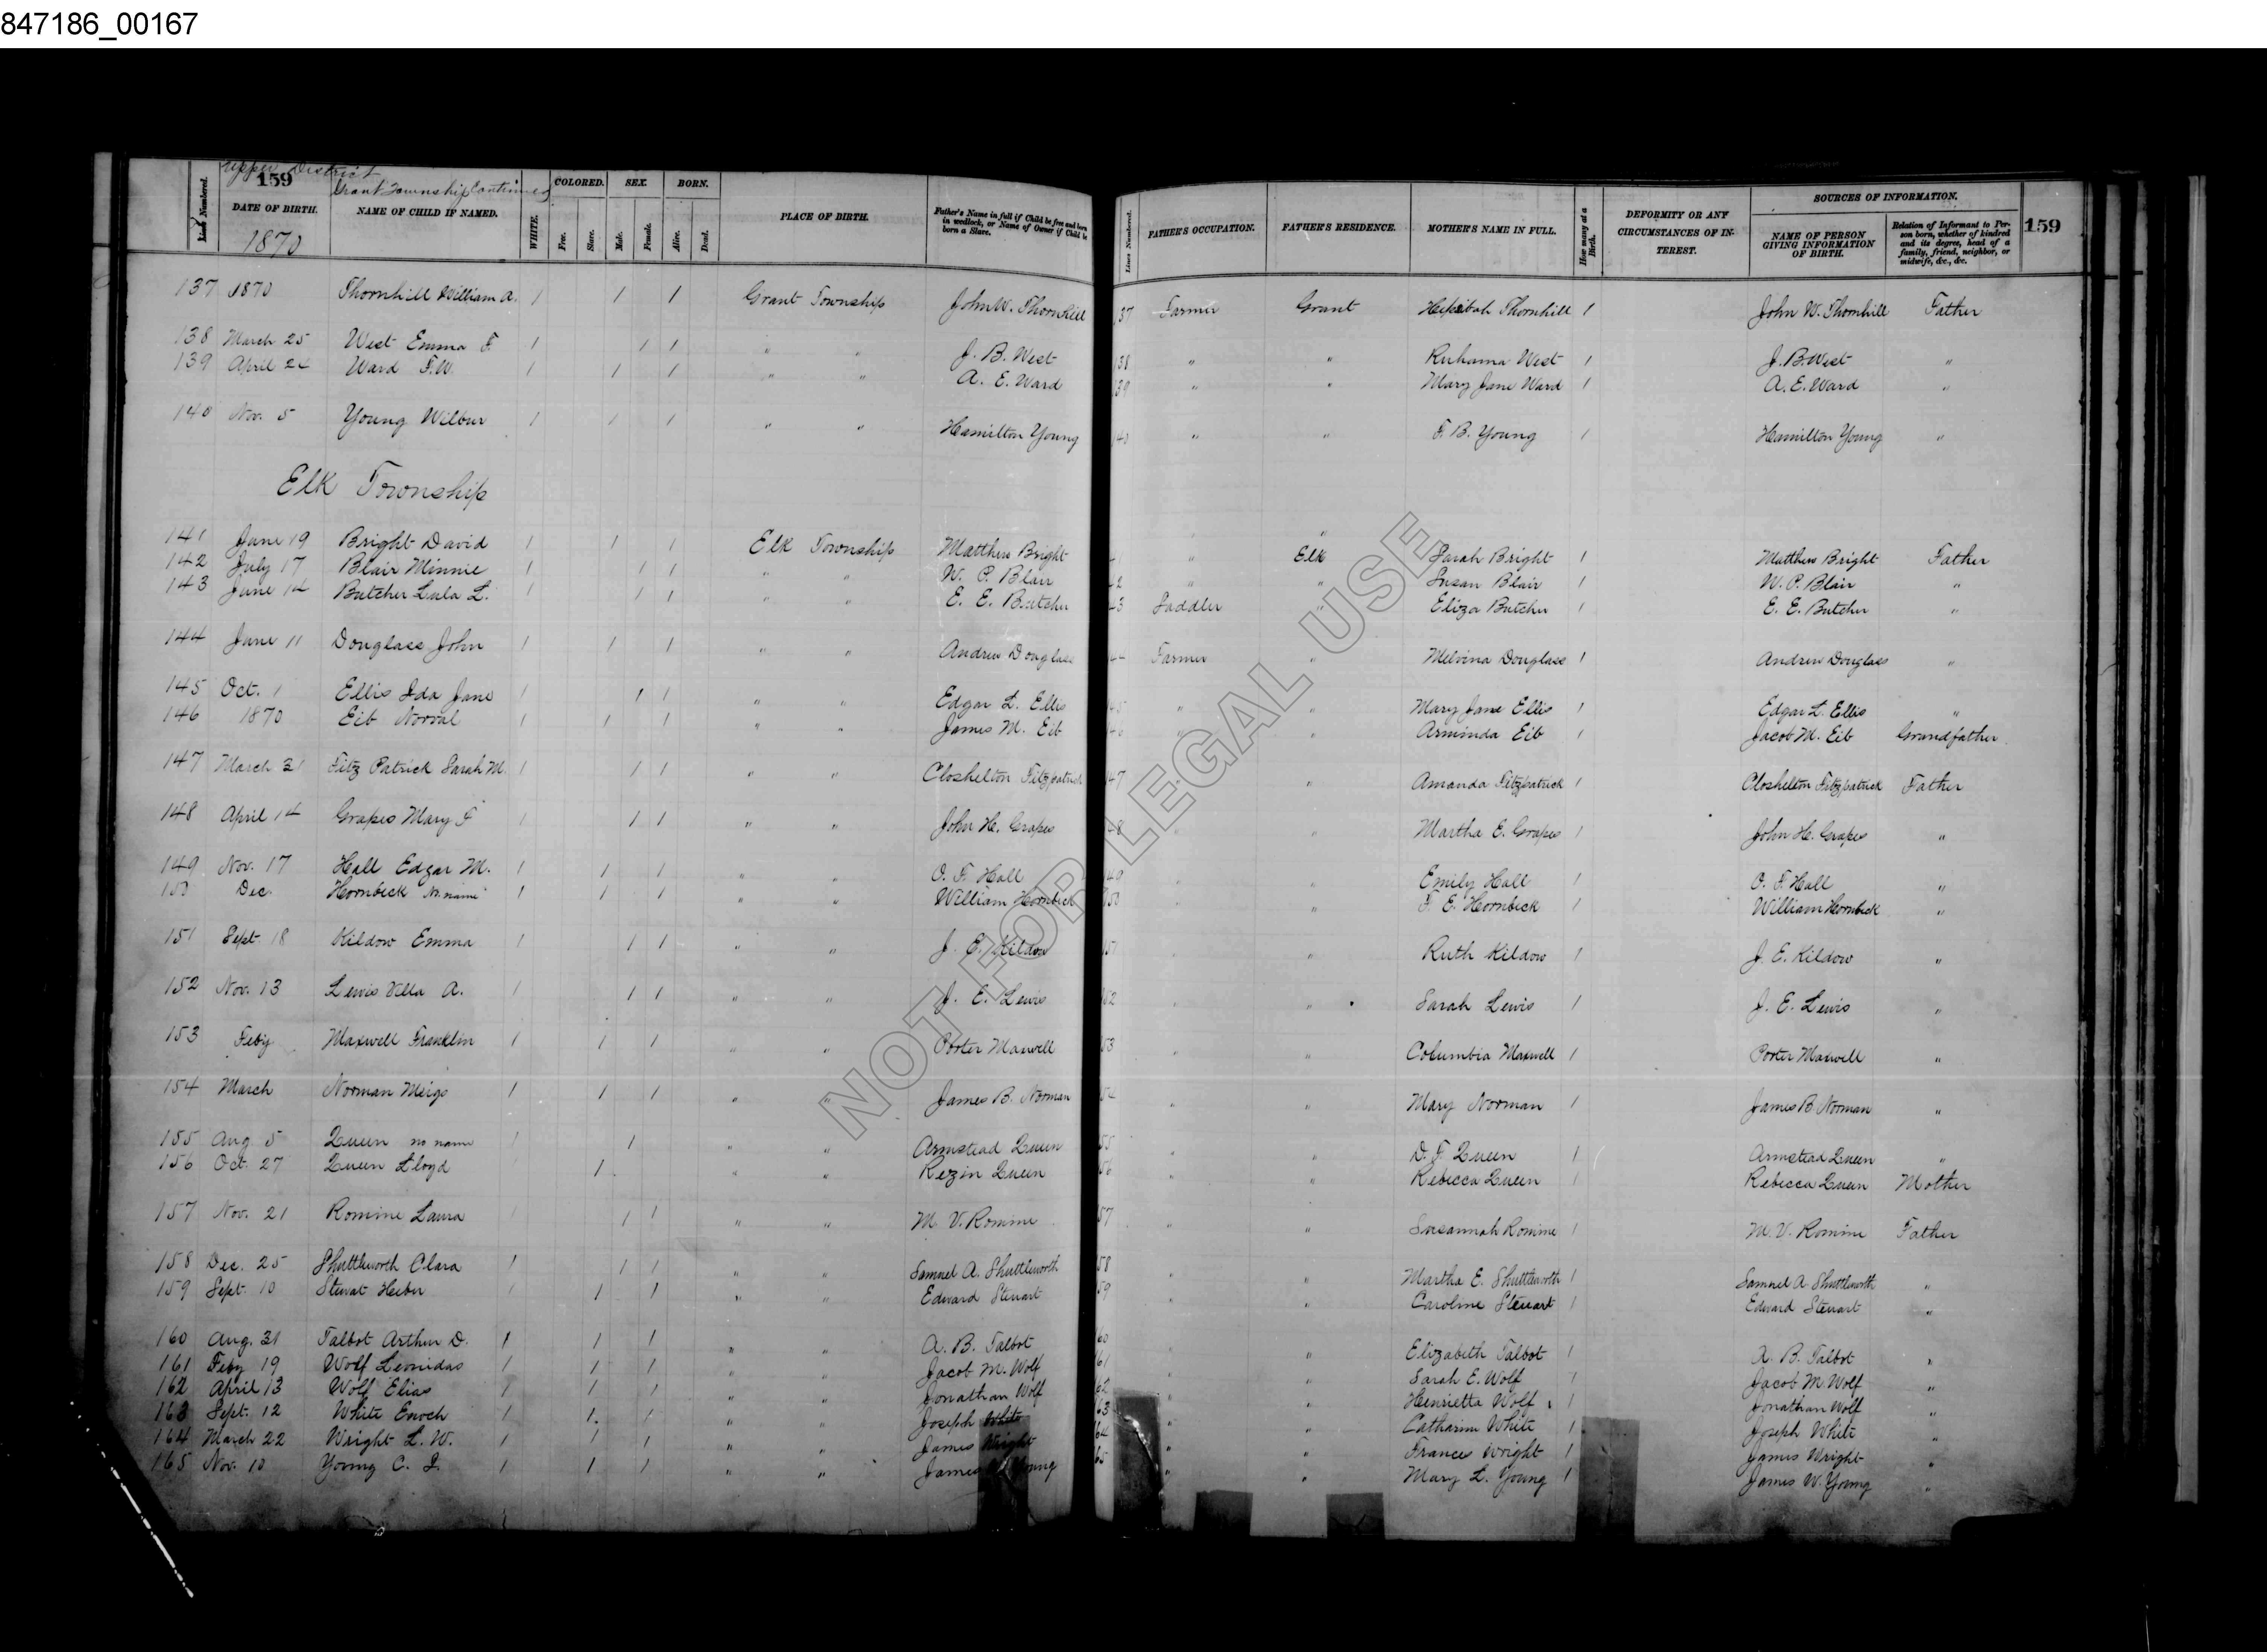 847186_00167
Upper District
159
Grant Township Continued
Lines Numbered.
DATE OF BIRTH.
1870
NAME OF CHILD IF NAMED.
WHITE.
COLORED.
Free.
Slave.
SEX.
Male.
Female.
BORN.
Alive.
Dead.
PLACE OF BIRTH.
Father's Name in full if Child be free and born in wedlock, or Name of Owner if Child be born a Slave.
Lines Numbered.
FATHER'S OCCUPATION.
FATHER'S RESIDENCE.
MOTHER'S NAME IN FULL.
How many at a Birth.
DEFORMITY OR ANY CIRCUMSTANCES OF INTEREST.
SOURCES OF INFORMATION.
NAME OF PERSON GIVING INFORMATION OF BIRTH.
Relation of Informant to Person born, whether of kindred and its degree, head of a family, friend, neighbor, or midwife, &c., &c.
159
137 1870 Thornhill William A. 1 1 1 Grant Township John W. Thornhill 37 Farmer Grant Hepsibah Thornhill 1 John W. Thornhill Father
138 March 25 West Emma F 1 1 1 " " J. B. West 38 " " Ruhama West 1 J. B. West "
139 April 24 Ward F. W. 1 1 1 " " A. E. Ward 39 " " Mary Jane Ward 1 A. E. Ward "
140 Nov. 5 Young Wilbur 1 1 1 " " Hamilton Young 40 " " F. B. Young 1 Hamilton Young "
Elk Township
141 June 19 Bright David 1 1 1 Elk Township Matthew Bright " Elk Sarah Bright 1 Matthew Bright Father
142 July 17 Blair Minnie 1 1 1 " " W. P. Blair 42 " " Susan Blair 1 W. P. Blair "
143 June 14 Butcher Lula L. 1 1 1 " " E. E. Butcher 43 Saddler " Eliza Butcher 1 E. E. Butcher "
144 June 11 Douglass John 1 1 1 " " Andrew Douglass 44 Farmer " Melvina Douglass 1 Andrew Douglass "
145 Oct. 1 Ellis Ida Jane 1 1 1 " " Edgar L. Ellis 45 " " Mary Jane Ellis 1 Edgar L. Ellis "
146 1870 Eib Norval 1 1 1 " " James M. Eib 46 " " Arminda Eib 1 Jacob M. Eib Grandfather
147 March 31 Fitz Patrick Sarah M. 1 1 1 " " Closhelton Fitzpatrick 47 " " Amanda Fitzpatrick 1 Closhelton Fitzpatrick Father
148 April 14 Grapes Mary F 1 1 1 " " John H. Grapes 48 " " Martha E. Grapes 1 John H. Grapes "
149 Nov. 17 Hall Edgar M. 1 1 1 " " O. F. Hall 49 " " Emily Hall 1 O. F. Hall "
150 Dec. Hornbeck No name 1 1 1 " " William Hornbeck 150 " " F. E. Hornbeck 1 William Hornbeck "
151 Sept. 18 Kildow Emma 1 1 1 " " J. E. Kildow 151 " " Ruth Kildow 1 J. E. Kildow "
152 Nov. 13 Lewis Villa A. 1 1 1 " " J. E. Lewis 152 " " Sarah Lewis 1 J. E. Lewis "
153 Feby Maxwell Franklin 1 1 1 " " Porter Maxwell 53 " " Columbia Maxwell 1 Porter Maxwell "
154 March Norman Meigs 1 1 1 " " James B. Norman 54 " " Mary Norman 1 James B Norman "
155 Aug 5 Queen no name 1 1 " " Armstead Queen 55 " " D. F. Queen 1 Armstead Queen "
156 Oct. 27 Queen Lloyd 1 " " Rezin Queen 56 " " Rebecca Queen 1 Rebecca Queen Mother
157 Nov. 21 Romine Laura 1 1 1 " " M. V. Romine 57 " " Susannah Romine 1 M. V. Romine Father
158 Dec. 25 Shuttleworth Clara 1 1 1 " " Samuel A. Shuttleworth 58 " " Martha E. Shuttleworth 1 Samuel A. Shuttleworth "
159 Sept. 10 Steuart Heber 1 1 1 " " Edward Steuart 59 " " Caroline Steuart 1 Edward Steuart "
160 Aug. 31 Talbot Arthur D. 1 1 1 " " A. B. Talbot 60 " " Elizabeth Talbot 1 A. B. Talbot "
161 Feby 19 Wolf Leonidas 1 1 1 " " Jacob M. Wolf 61 " " Sarah E. Wolf 1 Jacob M. Wolf "
162 April 13 Wolf Elias 1 1 1 " " Jonathan Wolf 62 " " Henrietta Wolf 1 Jonathan Wolf "
163 Sept. 12 White Enoch 1 1 1 " " Joseph White 63 " " Catharine White 1 Joseph White "
164 March 22 Wright L. W. 1 1 1 " " James Wright 64 " " Frances Wright 1 James Wright "
165 Nov. 10 Young C. I. 1 1 1 " " James W. Young 65 " " Mary L. Young 1 James W. Young "
NOT FOR LEGAL USE